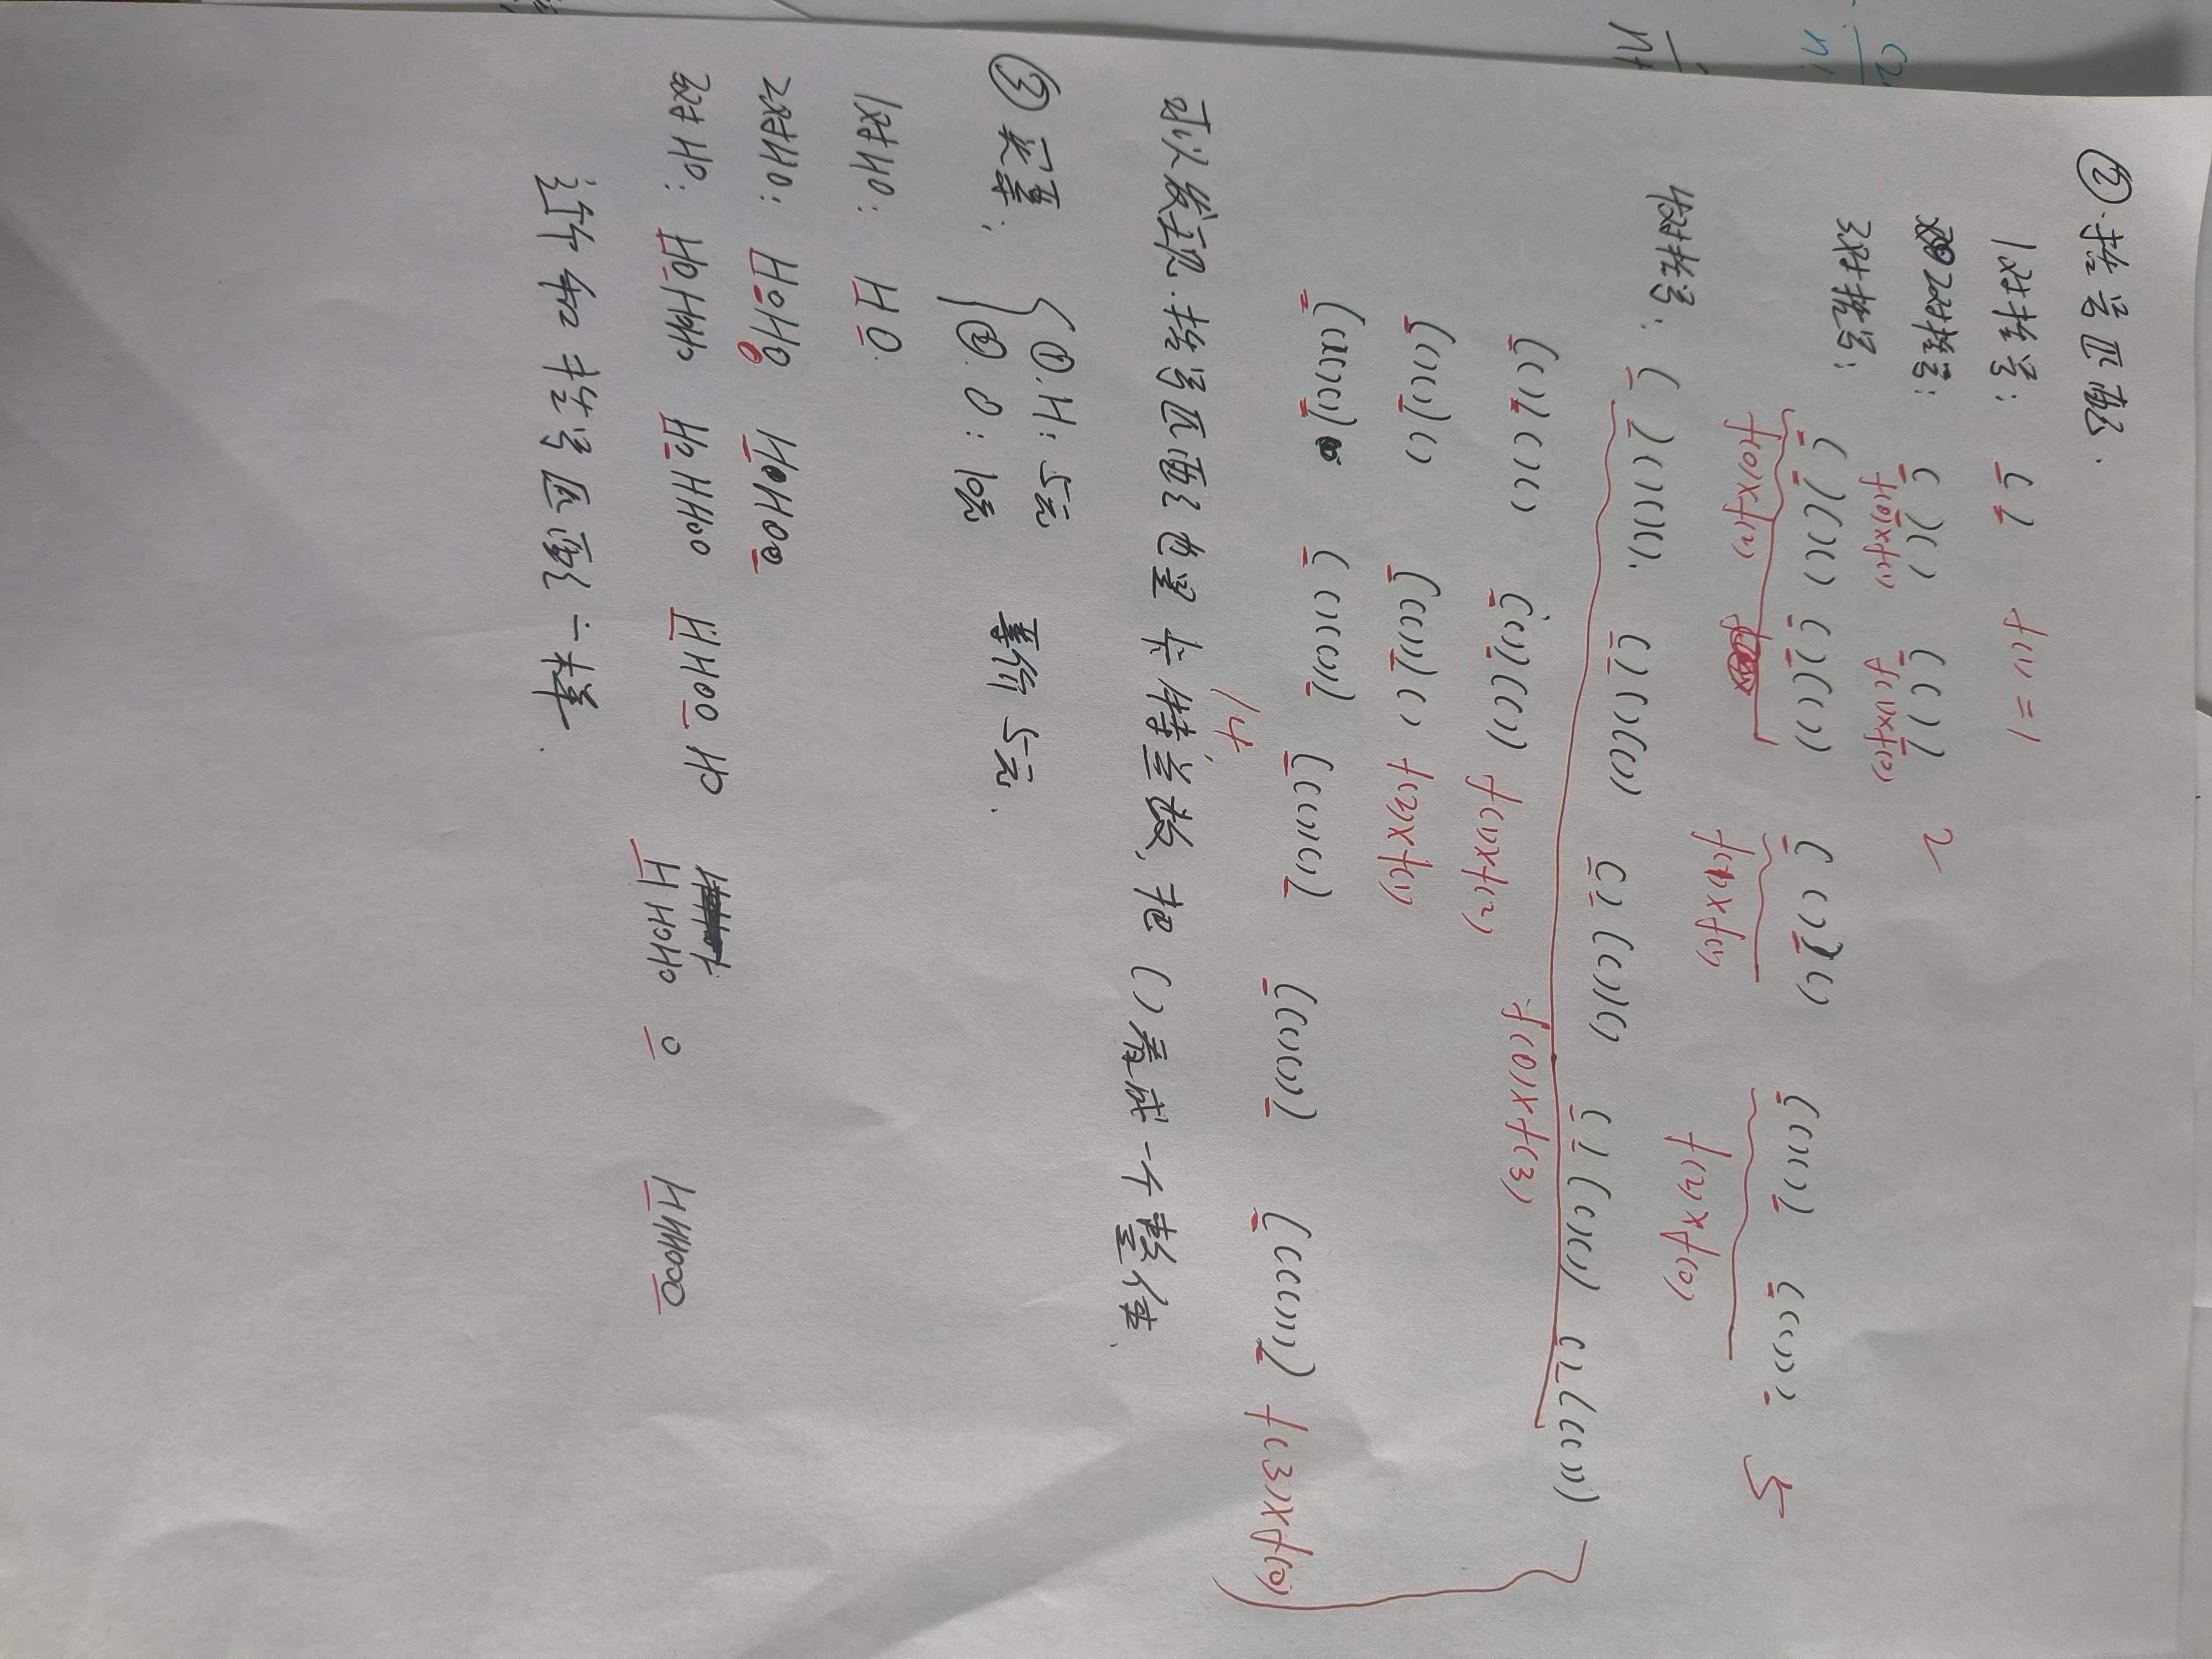 ② 括号匹配.
1对括号: () f(1)=1
2对括号: ()() (()) 2
f(0)×f(1) f(1)×f(0)
3对括号: ()(()) ()()() (())() (()()) ((())) 5
f(0)×f(2) f(1)×f(1) f(2)×f(0)
4对括号: ()()()() ()()(()) ()(())() ()(()()) ()((()))
f(0)×f(3)
(())()() (())(()) f(1)×f(2)
(()())() ((()))() f(2)×f(1)
(()()()) (()(())) ((())()) ((()())) (((()))) f(3)×f(0)
14
可以发现.括号匹配也是卡特兰数,把()看成一个整体.
③ 买票: { ①.H:5元 票价5元.
②.O:10元
1对HO: HO.
2对HO: HOHO HHOO
3对HO: HOHOHO HOHHOO HHOOHO HHOHOO HHHOOO
这个和括号匹配一样.